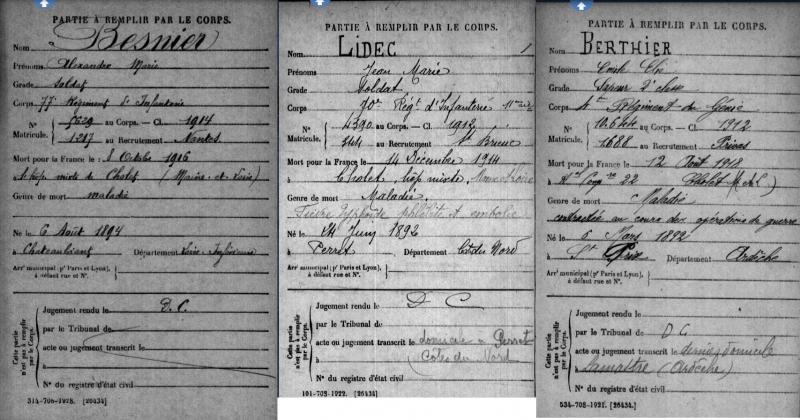 PARTIE À REMPLIR PAR LE CORPS.
Nom Besnier
Prénoms Alexandre Marie
Grade Soldat
Corps 77e Régiment d'Infanterie
N° Matricule. au Corps. — Cl. 1914
1287 au Recrutement Nantes
Mort pour la France le 8 Octobre 1916
à hôp. mixte de Cholet (Maine-et-Loire)
Genre de mort maladie
Né le 6 Août 1894
à Chateaubriant Département Loire-Inférieure
Arrt municipal (pr Paris et Lyon), à défaut rue et N°.
Cette partie n'est pas à remplir par le Corps.
Jugement rendu le D.C.
par le Tribunal de
acte ou jugement transcrit le
à
N° du registre d'état civil
514-708-1928. [26434]
PARTIE À REMPLIR PAR LE CORPS.
Nom LIDEC
Prénoms Jean Marie
Grade Soldat
Corps 70e Régt d'Infanterie 11me
N° Matricule. 4390 au Corps. — Cl. 1912
344 au Recrutement St Brieuc
Mort pour la France le 14 Décembre 1914
à Cholet, hôp mixte, Maine & Loire
Genre de mort Maladie
Fièvre typhoïde phlébite et embolie
Né le 24 Juin 1892
à Perret Département Côtes du Nord
Arrt municipal (pr Paris et Lyon), à défaut rue et N°.
Cette partie n'est pas à remplir par le Corps.
Jugement rendu le D C
par le Tribunal de
acte ou jugement transcrit le domicile à Perret
à (Cotes du Nord
N° du registre d'état civil
101-708-1922. [26434]
PARTIE À REMPLIR PAR LE CORPS.
Nom BERTHIER
Prénoms Elie
Grade Sapeur 2e classe
Corps 4e Régiment du Génie
N° Matricule. 10.644 au Corps. — Cl. 1912
1688 au Recrutement Privas
Mort pour la France le 12 Août 1918
à 22 Cholet M&L)
Genre de mort Maladie
contractée en cours des opérations de guerre
Né le 6 Mars 1892
à St Prix Département Ardèche
Arrt municipal (pr Paris et Lyon), à défaut rue et N°.
Cette partie n'est pas à remplir par le Corps.
Jugement rendu le
par le Tribunal de D C
acte ou jugement transcrit le dernier domicile
à Lamastre (Ardèche)
N° du registre d'état civil
534-708-1921. [26434]